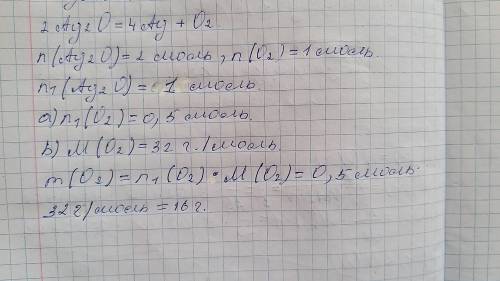 2 Ag₂O = 4 Ag + O₂
n(Ag₂O) = 2 моль, n(O₂) = 1 моль.
n₁(Ag₂O) = 1 моль.
a) n₁(O₂) = 0,5 моль.
b) M(O₂) = 32 г./моль.
m(O₂) = n₁(O₂) • M(O₂) = 0,5 моль·
32 г/моль = 16 г.